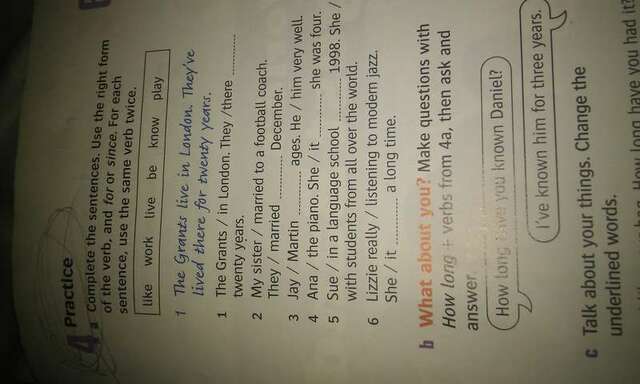 4 Practice
a Complete the sentences. Use the right form
of the verb, and for or since. For each
sentence, use the same verb twice.
like work live be know play
1 The Grants live in London. They've
lived there for twenty years.
1 The Grants / in London. They / there ..........
twenty years.
2 My sister / married to a football coach.
They / married .......... December.
3 Jay / Martin .......... ages. He / him very well.
4 Ana / the piano. She / it .......... she was four.
5 Sue / in a language school .......... 1998. She /
with students from all over the world.
6 Lizzie really / listening to modern jazz.
She / it .......... a long time.
b What about you? Make questions with
How long + verbs from 4a, then ask and
answer.
How long have you known Daniel?
I've known him for three years.
c Talk about your things. Change the
underlined words.
long have you had it?